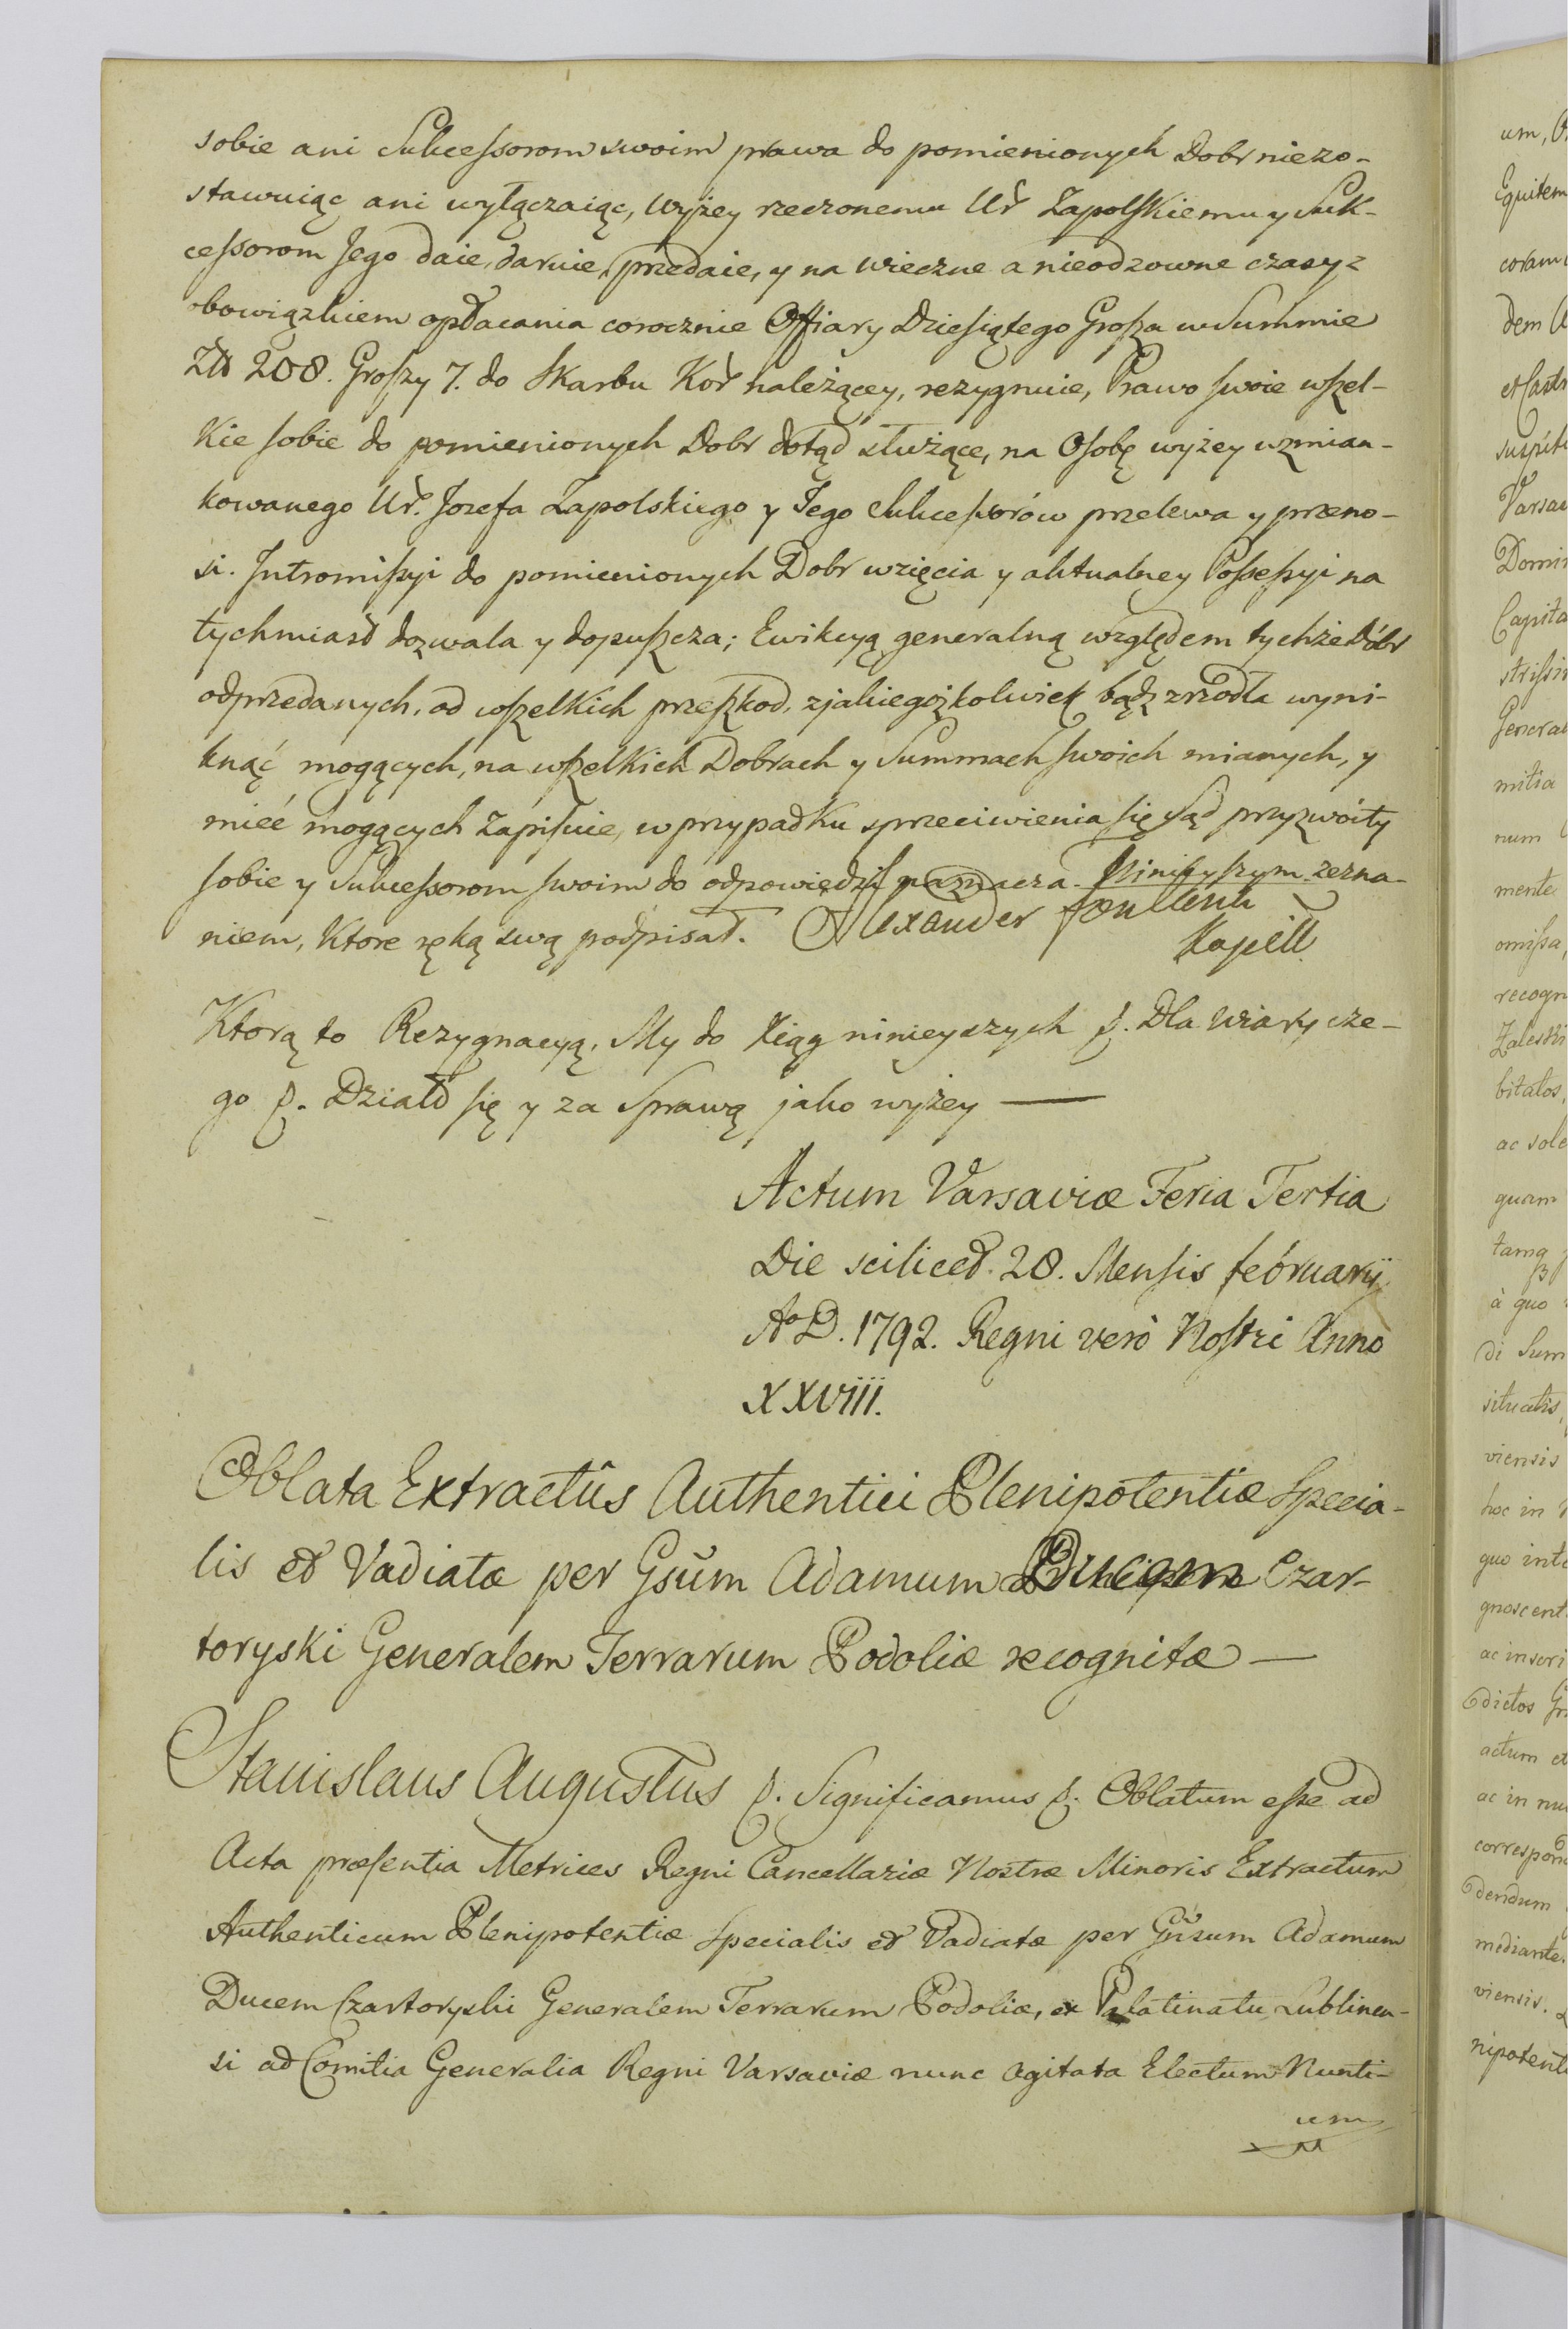 sobie ani Sukcessorom swoim prawa do pomienionych Dobr niezo-
stawuiąc ani wyłączaiąc, wyżey rzeczonemu Ur Zapolskiemu y Suk-
cessorom Jego daie, daruie, przedaie, y na wieczne a nieodzowne czasy z
obowiązkiem opłacania corocznie Offiary Dziesiątego Grosza w Summie
Złł 208. Groszy 7. do Skarbu Kor należącey, rezygnuie, Prawo swoie wszel-
kie sobie do pomienionych Dobr dotąd służące, na Osobę wyżey wzmian-
kowanego Ur. Jozefa Zapolskiego y Jego Sukcessorów przelewa y przeno-
si. Intromissyi do pomienionych Dobr wzięcia y aktualney Possessyi na
tychmiast dozwala y dopuszcza; Ewikcyą generalną względem tychże Dóbr
odprzedanych, od wszelkich przeszkod, z jakiegożkolwiek bądz zrzodła wyni-
knąć mogących, na wszelkich Dobrach y Summach swoich mianych, y
mieć mogących zapisuie, w przypadku sprzeciwienia się Sąd przyzwoity
sobie y Sukcessorom swoim do odpowiedzi naznacza. Ninieyszym zezna-
niem, ktore ręką swą podpisał. Alexander
Kapell
Ktorą to Rezygnacyą, My do Xiąg ninieyszych p. Dla Wiary cze-
go p. Działo się y za Sprawą jako wyżey —
Actum Varsaviæ Feria Tertia
Die scilicet. 28. Mensis februarÿ
Ao D. 1792. Regni verò Nostri Anno
XXVIII.
Oblata Extractûs Authentici Plenipotentiæ Specia-
lis et Vadiatæ per Gsum Adamum Ducem Czar-
toryski Generalem Terrarum Podoliæ recognitæ —
Stanislaus Augustus p. Significamus p. Oblatum esse ad
Acta præsentia Metrices Regni Cancellariæ Nostræ Minoris Extractum
Authenticum Plenipotentiæ Specialis et Vadiatæ per Gnsum Adamum
Ducem Czartoryski Generalem Terrarum Podoliæ, ex Palatinatu Lublinen-
si ad Comitia Generalia Regni Varsaviæ nunc agitata Electum Nunti-
um